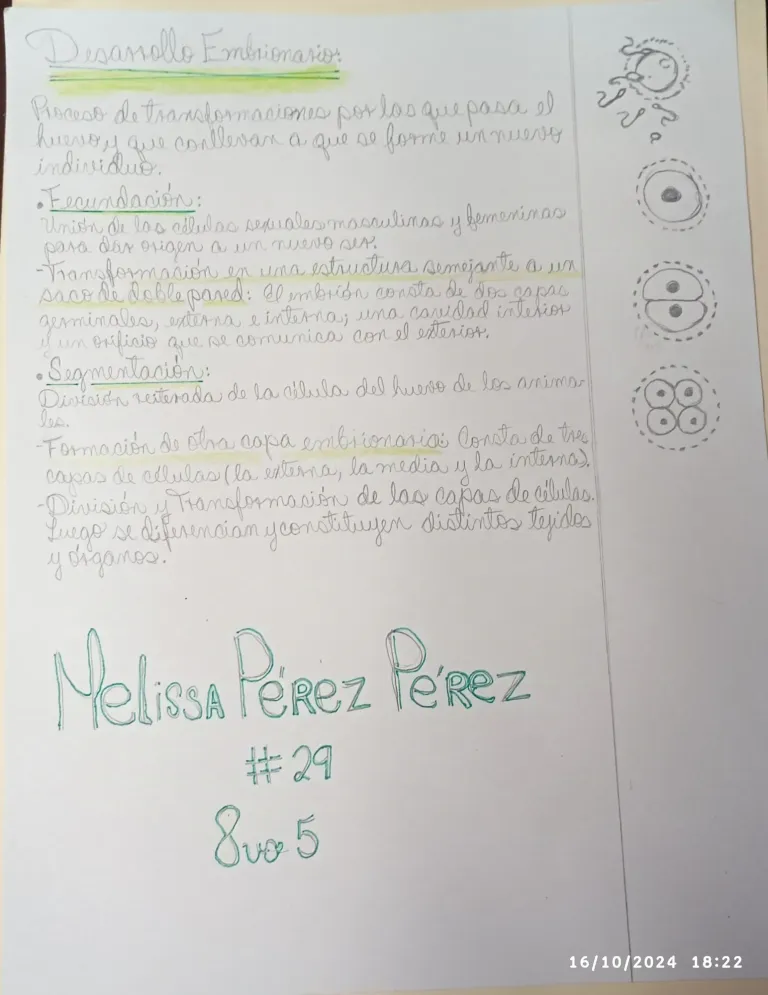 Desarrollo Embrionario:
Proceso de transformaciones por las que pasa el
huevo y que conllevan a que se forme un nuevo
individuo.
• Fecundación:
Unión de las células sexuales masculinas y femeninas
para dar origen a un nuevo ser.
-Transformación en una estructura semejante a un
saco de doble pared: El embrión consta de dos capas
germinales, externa e interna; una cavidad interior
y un orificio que se comunica con el exterior.
• Segmentación:
División reiterada de la célula del huevo de los anima-
les.
-Formación de otra capa embrionaria: Consta de tres
capas de células (la externa, la media y la interna).
-División y Transformación de las capas de células.
Luego se diferencian y constituyen distintos tejidos
y órganos.
Melissa Pérez Pérez
#29
8vo 5
16/10/2024 18:22